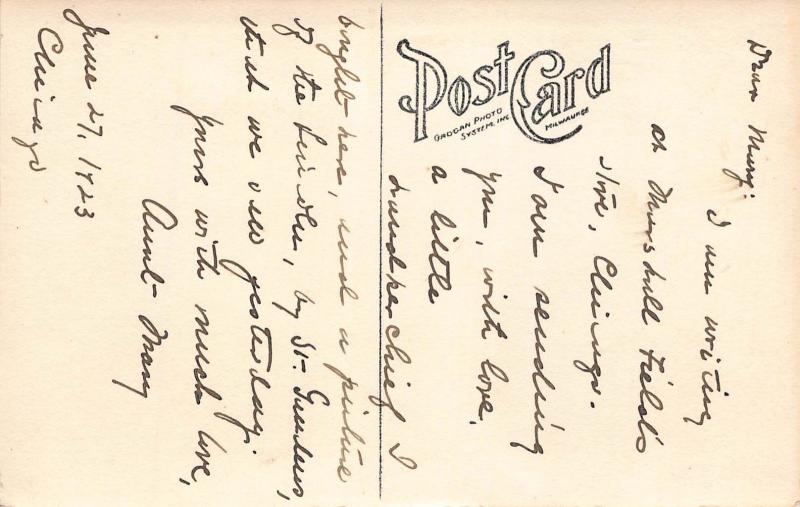 Post Card
GROGAN PHOTO
SYSTEM, INC
MILWAUKEE
Dear Mary:
I am writing
at Marshall Field's
store, Chicago.
I am sending
you, with love,
a little
handkerchief I
bought here, and a picture
of the Lincoln, by St. Gaudens,
that we saw yesterday.
Yours with much love,
Aunt Mary
June 27, 1923
Chicago